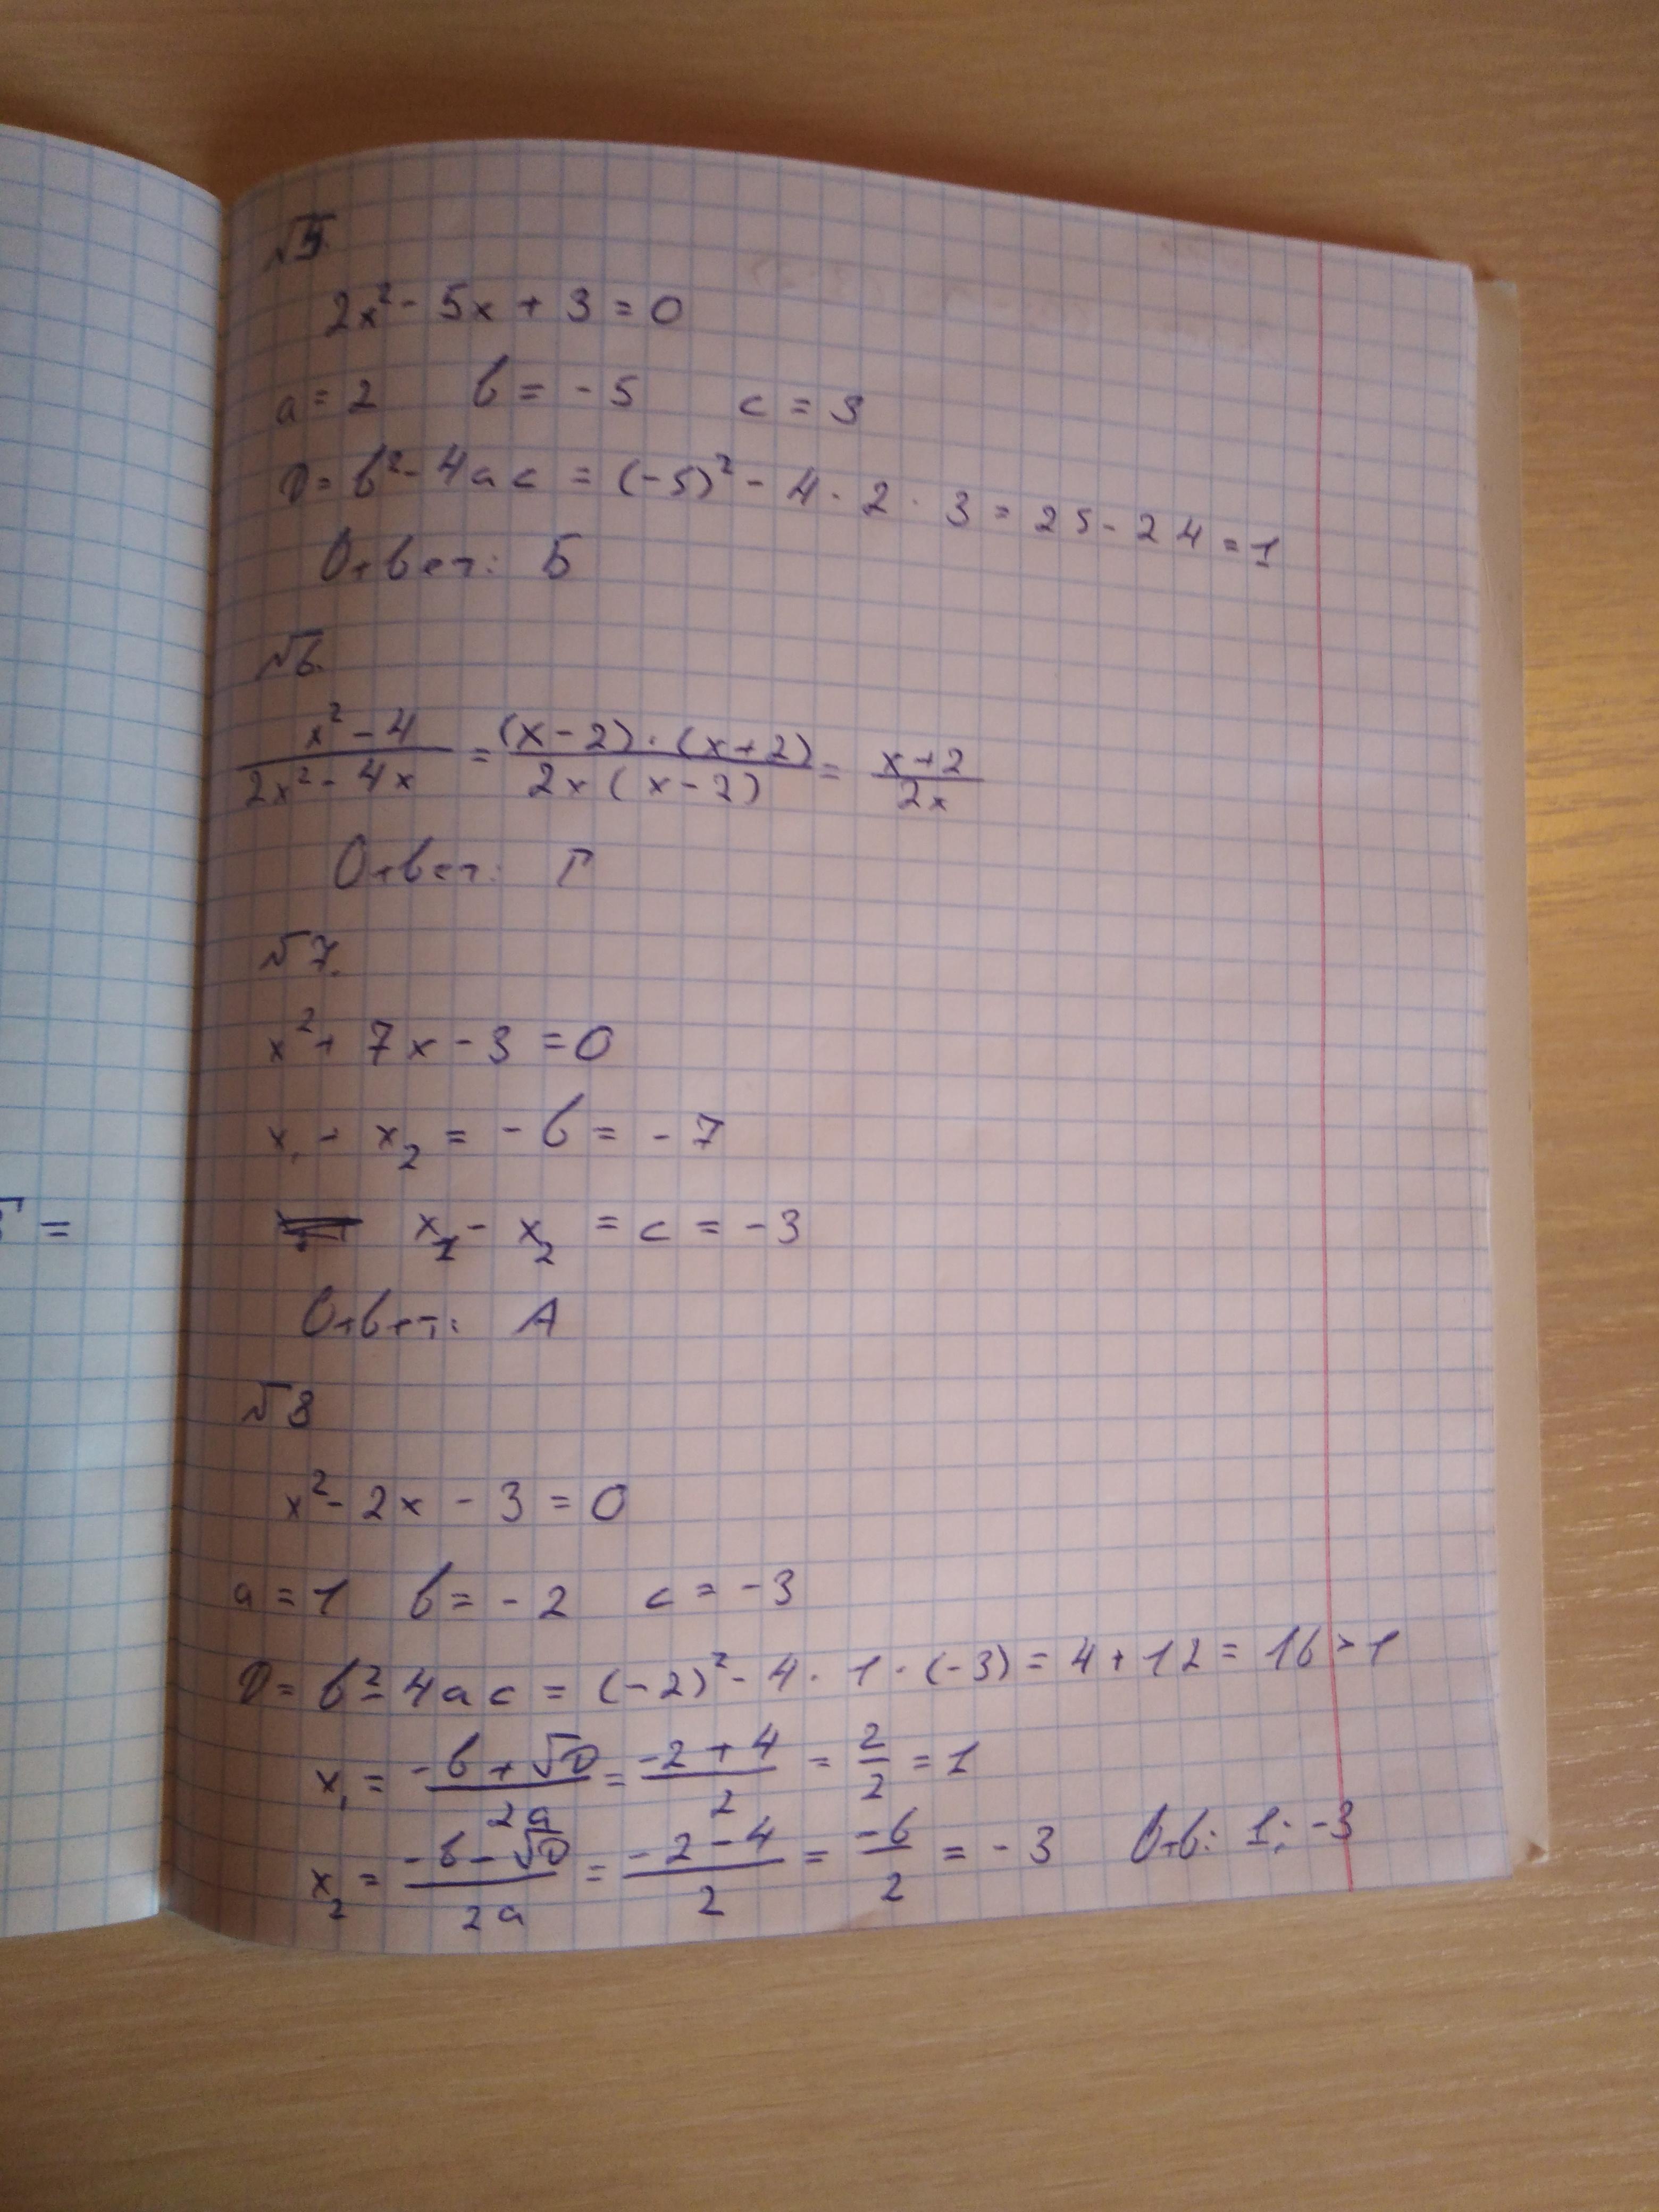 №5.
2x² - 5x + 3 = 0
a = 2 b = - 5 c = 3
D = b² - 4ac = (-5)² - 4 · 2 · 3 = 25 - 24 = 1
Ответ: Б
№6.
(x² - 4)/(2x² - 4x) = ((x - 2) · (x + 2))/(2x (x - 2)) = (x + 2)/(2x)
Ответ: Г
№7.
x² + 7x - 3 = 0
x₁ + x₂ = - b = - 7
x₁ - x₂ = c = - 3
Ответ: А
№8
x² - 2x - 3 = 0
a = 1 b = - 2 c = - 3
D = b² - 4ac = (-2)² - 4 · 1 · (-3) = 4 + 12 = 16 > 1
x₁ = (-b + √D)/(2a) = (-2 + 4)/2 = 2/2 = 1
x₂ = (-b - √D)/(2a) = (-2 - 4)/2 = -6/2 = - 3 Отв: 1; -3
√ =